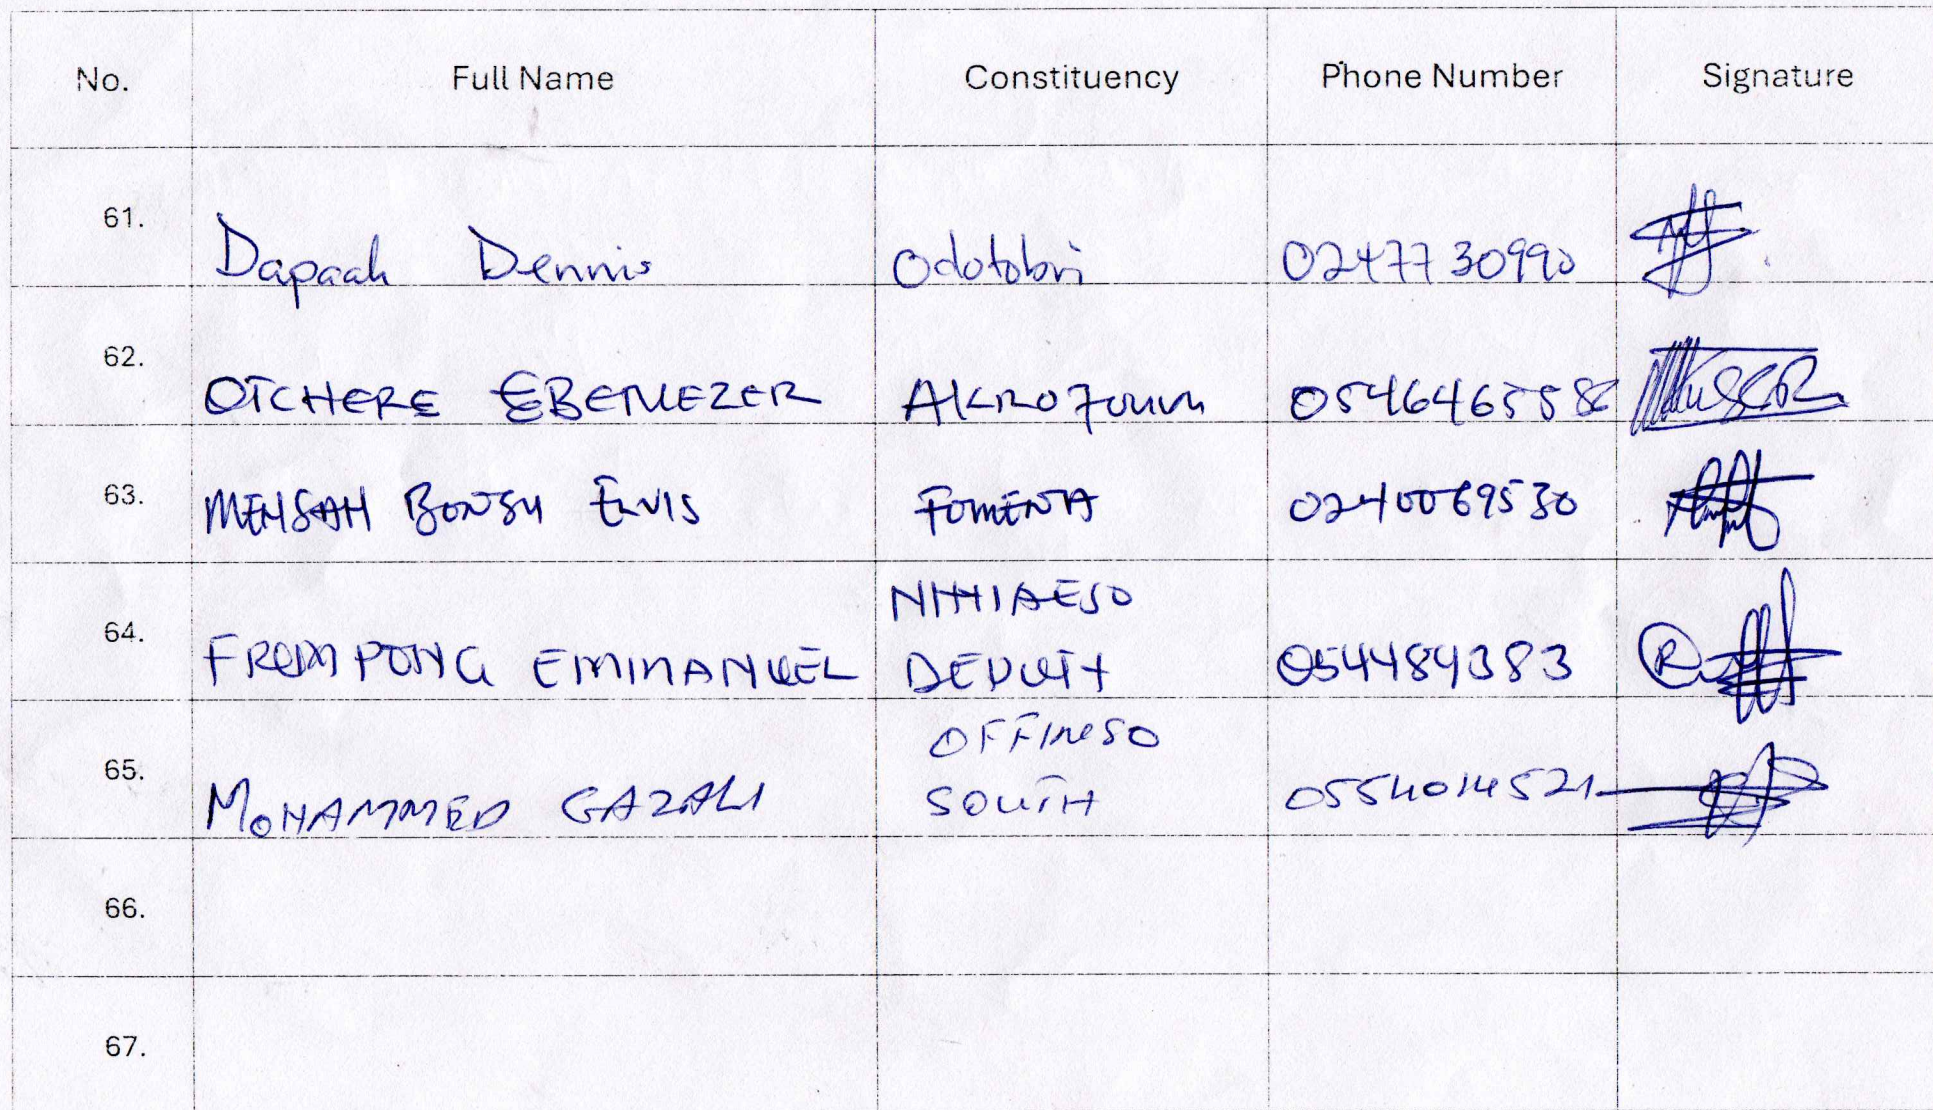 No. Full Name Constituency Phone Number Signature
61. Dapaah Dennis Odotobri 0247730990
62. OTCHERE EBENEZER AKROFOUM 0546465588
63. MENSAH BONSU ELVIS FOMENA 0240069530
NHHIAESO
64. FROMPONG EMMANUEL DEPUTY 0544489383
OFFINSO
65. MOHAMMED GAZALI SOUTH 0554014521
66.
67.